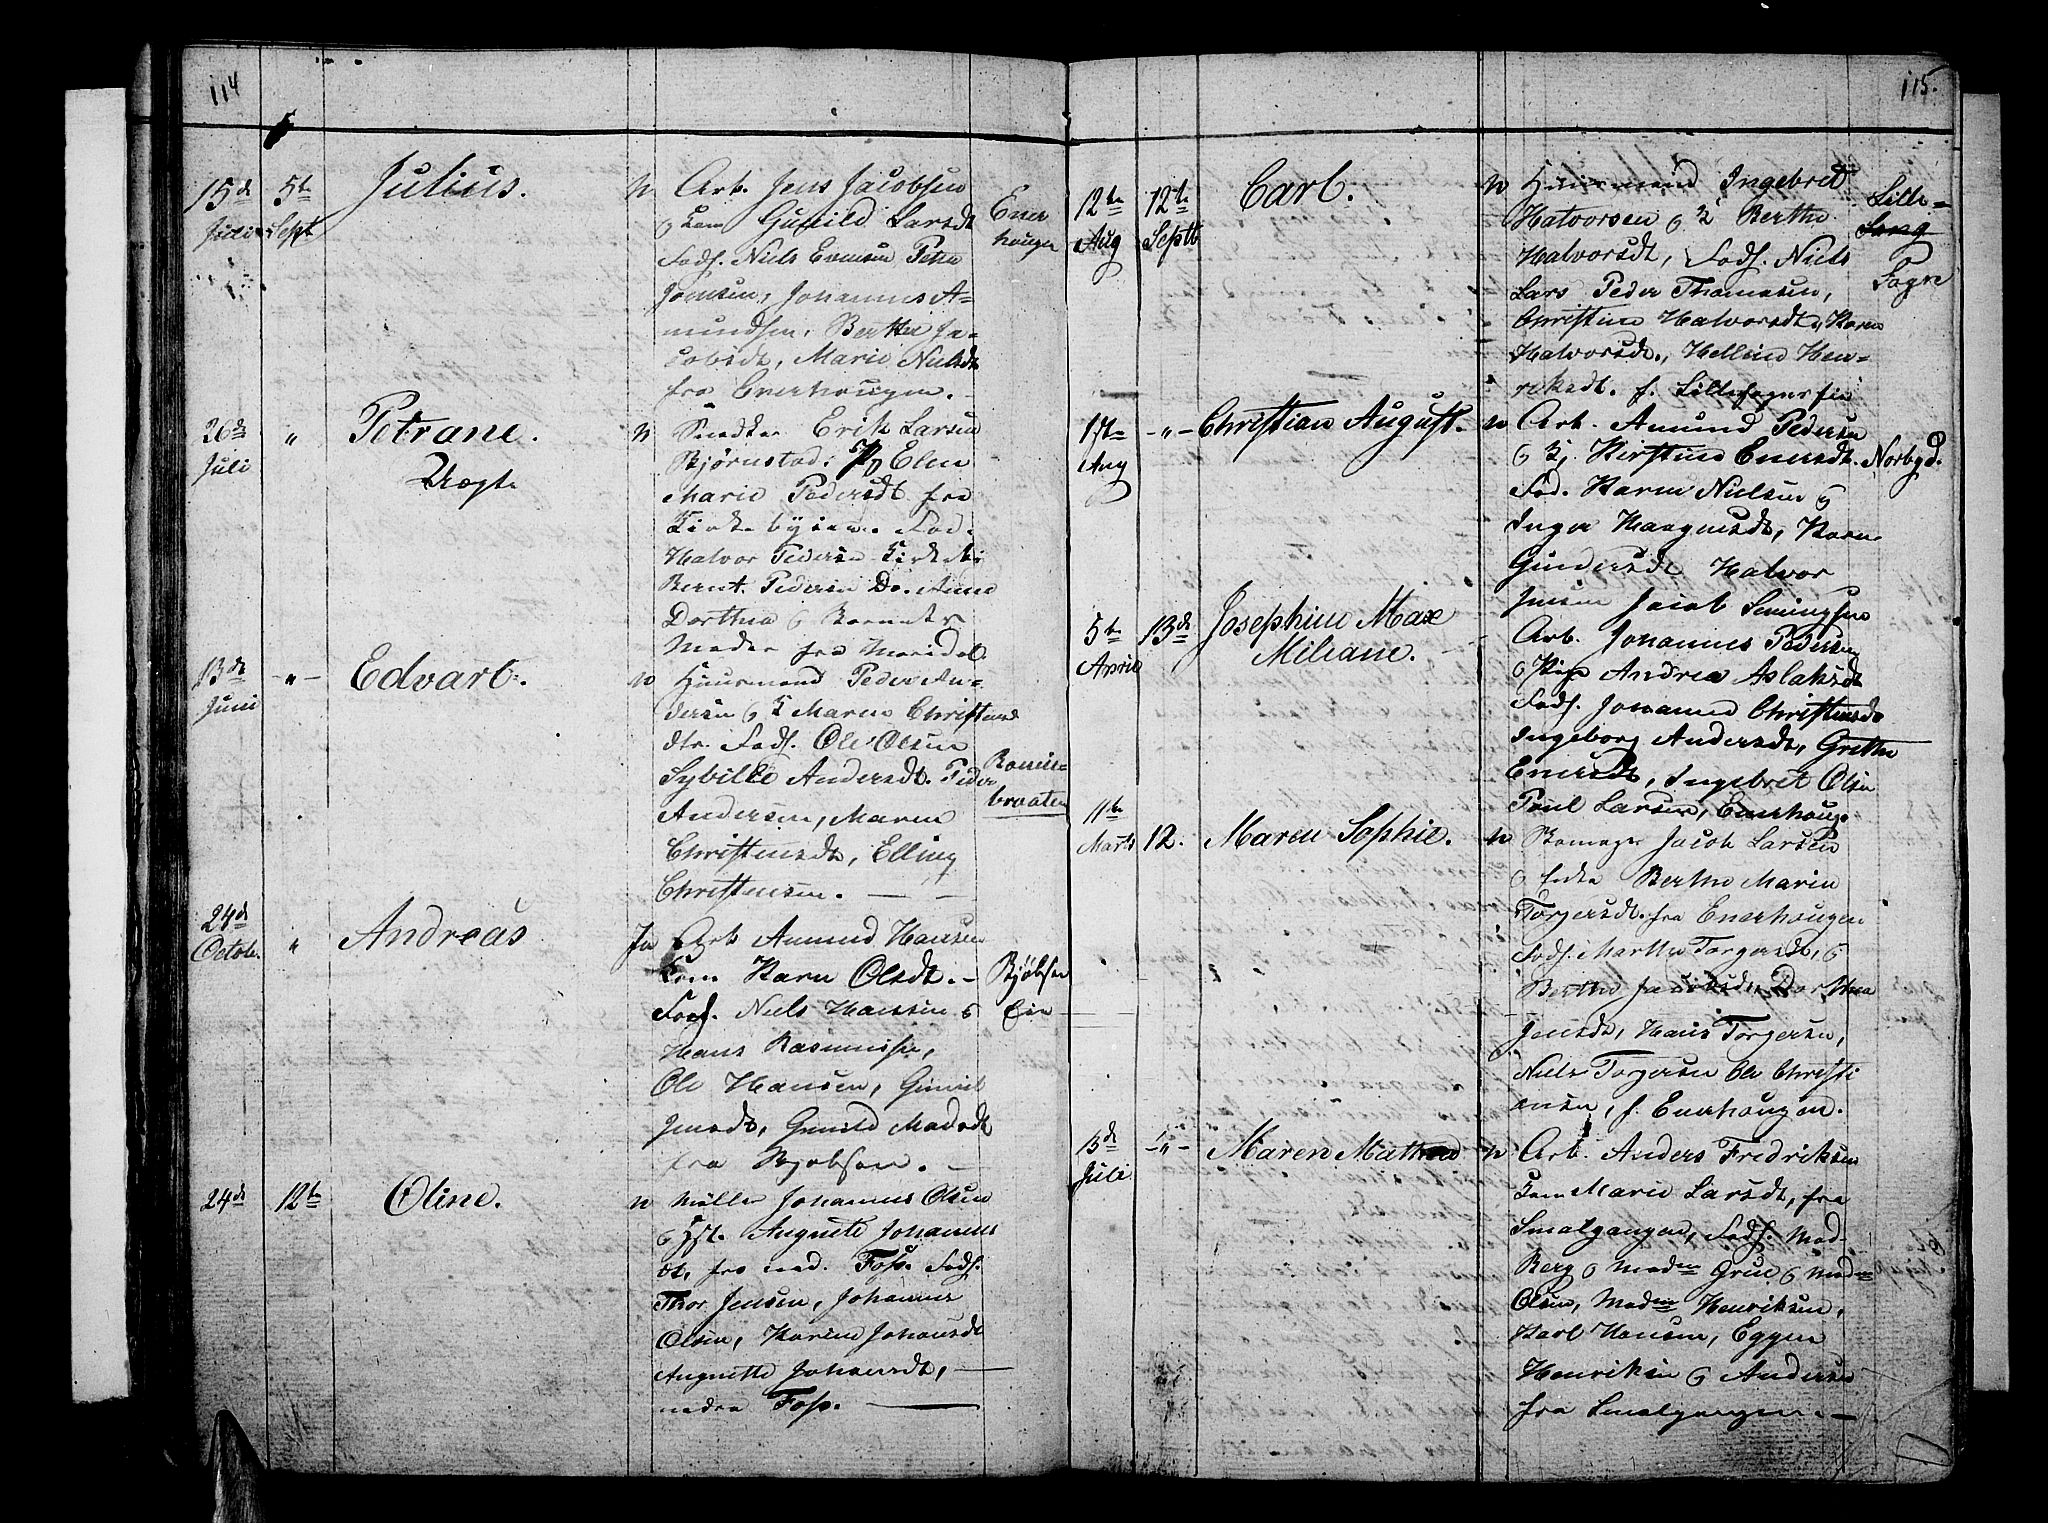 114
15de
Juli
5te
Sept
Julius.
n
Arb. Jens Jacobsen
o Kone Gunild Larsdt
Fads. Niels Evensen Peter
Jonsen, Johannes A-
mundsen, Berthe Ja-
cobsdt, Marie Nielsdt
fra Enerhougen.
Ener
hougen
26de
Juli
"
Petrane.
Uægte
n
Snedker Erik Larsen
Bjørnstad. P/p Elen
Marie Pedersdt fra
Kirkebyeien. Fad.
Halvor Pedersen Kirkebÿ
Bernt Pedersen Do. Anne
Dorthea o Barnets
Moder fra Maridal.
13de
Juni
-"-
Edvart.
n
Huusmand Peder An-
dersen o K Maren Christens
dtr. Fads. Ole Olsen
Sybille Andersdt. Peder
Andersen, Maren
Christensdt, Elling
Christensen.
braaten
24de
Octobr.
"
Andreas
Ja
Arb Amund Hansen
Kone Karen Olsdt. -
Fads. Niels Hansen o
Hans Rasmussen,
Ole Hansen, Gunild
Jensdt, Gunild Madsdt
fra Bjøbsen.
Bjøbsen
Eie
24de
12te
Oline.
n
Møller Johannes Olsen
o Hst. Augute Johannes
dt, fra ned. Foss. Fads.
Thor Jensen, Johannes
Olsen, Karen Johansdt
Augnette Johansdt,
nedre Foss.
115.
12te
Aug
12te
Septb
Carl.
n
Huusmand Ingebret
Halvorsen o K Berthe
Halvorsdt, Fads. Niels
Lars Peder Thomasen,
Christine Halvorsdt, Karen
Halvorsdt., Helline Hen-
riksdt. f. Lillefogn
Lille-
Sogn
1ste
Aug
-"-
Christian August.
n
Arb. Amund Pedersen
o K. Kirstine Enersdt.
Fad. Karen Nielsen o
Inger Haagensdt, Karen
Gundersdt Halvor
Jensen Jacob Semingsen
Norbyd.
5te
April
13de
Josephine Maxe
Miliane.
Arb. Johannes Pedersen
o Pige Andrea Aslaksdt
Fads. Johanne Christensdt
Ingeborg Andersdt, Grethe
Enersdt, Ingebret Olsen
Poul Larsen, Enerhoug.
11te
Marts
12.
Maren Sophie.
n
Jacob Larsen
o Enke Berthe Marie
Torgersdt. fra Enerhougen
Fads. Marthe Torgersdt, o
Berthe Jacobsdt, Dorthea
Jensdt, Hans Torgersen,
Niels Torgersen Ole Christi
ansen, f. Enerhougen.
13de
Juli
-"-
Maren Mathea
n
Arb. Anders Fredriksen
Kone Marie Larsdt, fra
Smalgangen, Fads. Mad-
Berg o Madme Grue o Madme
Olsen, Madme Henriksen,
Karl Hansen, Eggen
Henriksen o Andersen
fra Smalgangen. -